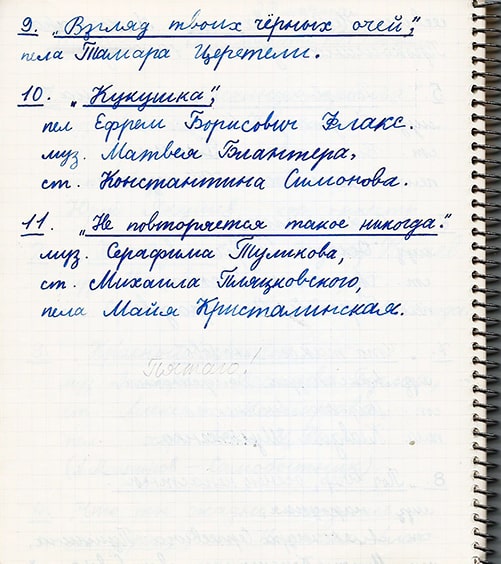 9. „Взгляд твоих чёрных очей”,
пела Тамара Церетели.
10. „Кукушка”,
пел Ефрем Борисович Флакс.
муз. Матвея Блантера,
ст. Константина Симонова.
11. „Не повторяется такое никогда.”
муз. Серафима Туликова,
ст. Михаила Пляцковского,
пела Майя Кристалинская.